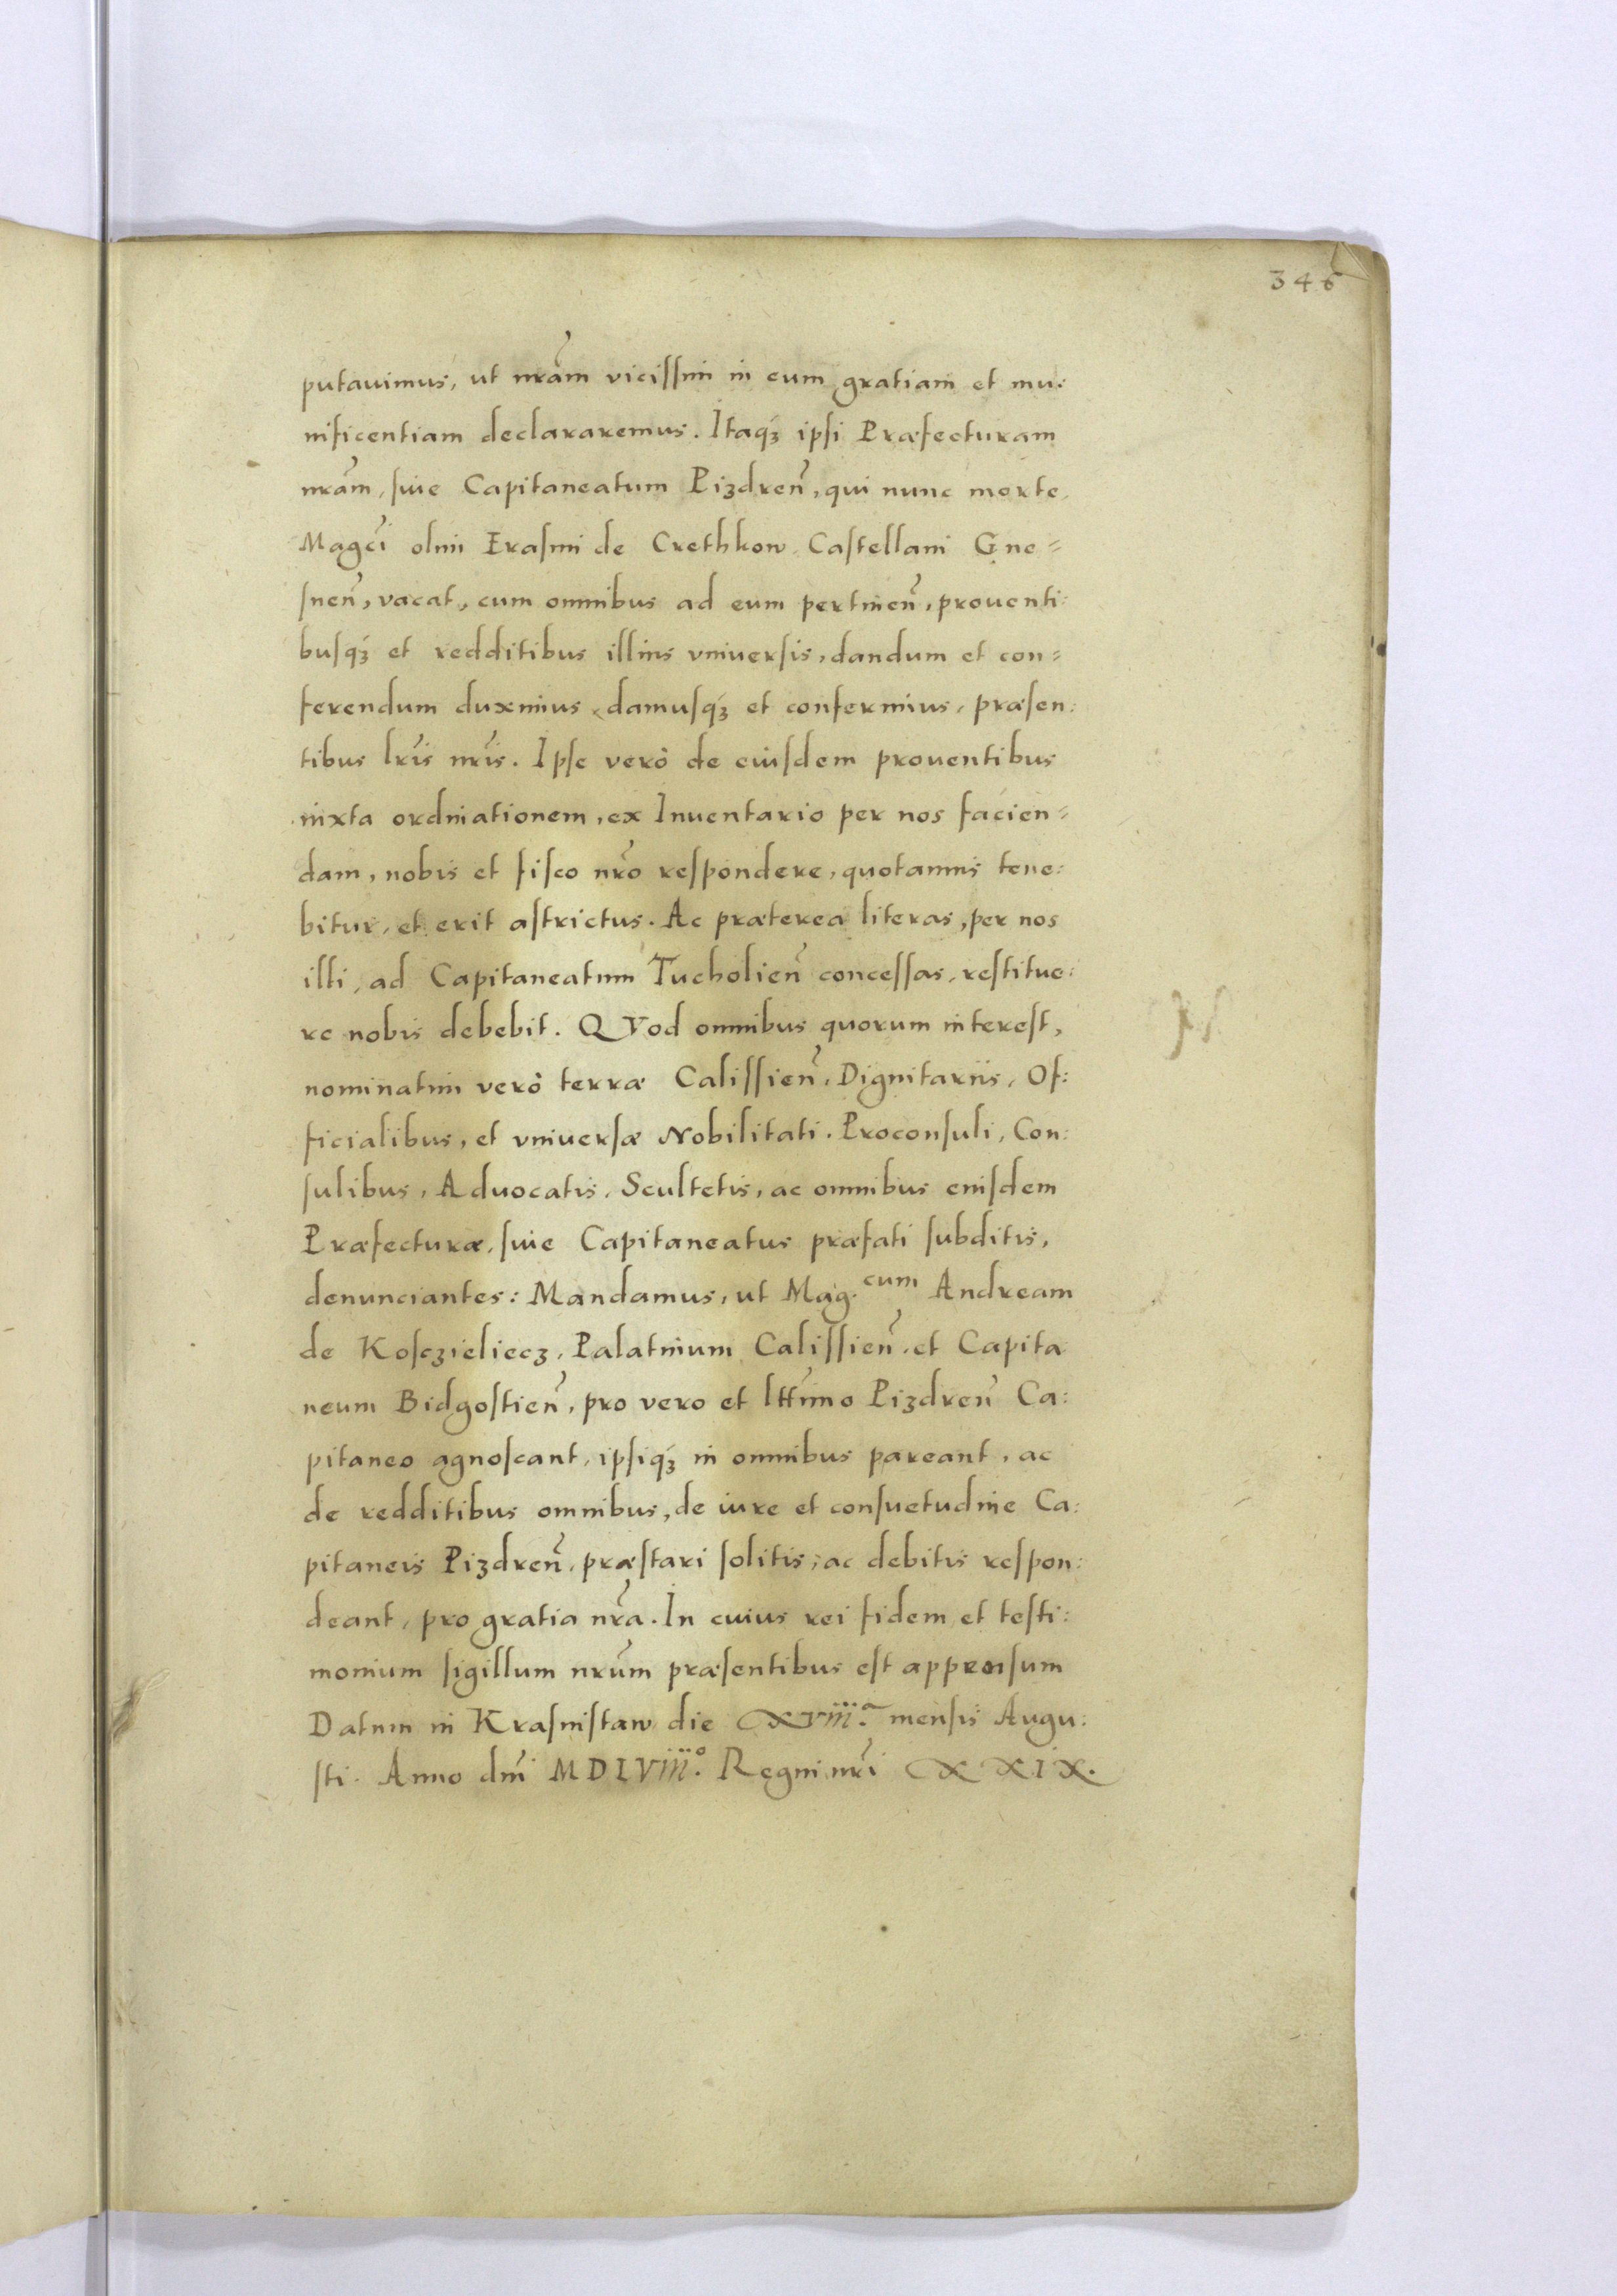 346
putauimus, ut nr̃am vicissim in eum gratiam et mu:
nificentiam declararemus. Itaq́ꝫ ipsi Præfecturam
nr̃am, siue Capitaneatum Pizdreñ, qui nunc morte
Magc̃i olim Erasmi de Crethkow Castellani Gne=
sneñ, vacat, cum omnibus ad eum pertineñ, prouenti:
busq́ꝫ et redditibus illius vniuersis, dandum et con=
ferendum duximus, damusq́ꝫ et conferimus, præsen:
tibus lr̃is nr̃is. Ipse verò de eiusdem prouentibus
iuxta ordinationem, ex Inuentario per nos facien=
dam, nobis et fisco nr̃o respondere, quotannis tene:
bitur, et erit astrictus. Ac præterea literas, per nos
illi, ad Capitaneatum Tucholieñ concessas, restitue:
re nobis debebit. QVod omnibus quorum interest,
nominatim verò terræ Calissieñ, Dignitariis, Of:
ficialibus, et vniuersæ Nobilitati. Proconsuli, Con:
sulibus, Aduocatis, Scultetis, ac omnibus eiusdem
Præfecturæ, siue Capitaneatus præfati subditis,
denunciantes: Mandamus, ut Mag.cum Andream
de Kosczieliecz, Palatinum Calissieñ, et Capita
neum Bidgostieñ, pro vero et lttimo Pizdreñ Ca:
pitaneo agnoscant, ipsiq́ꝫ in omnibus pareant, ac
de redditibus omnibus, de iure et consuetudine Ca:
pitaneis Pizdreñ, præstari solitis, ac debitis respon:
deant, pro gratia nr̃a. In cuius rei fidem et testi:
monium sigillum nr̃um præsentibus est appensum
Datum in Krasnistaw die XVIII.a mensis Augu:
sti. Anno dñi MDLVIII.o Regni nr̃i XXIX.